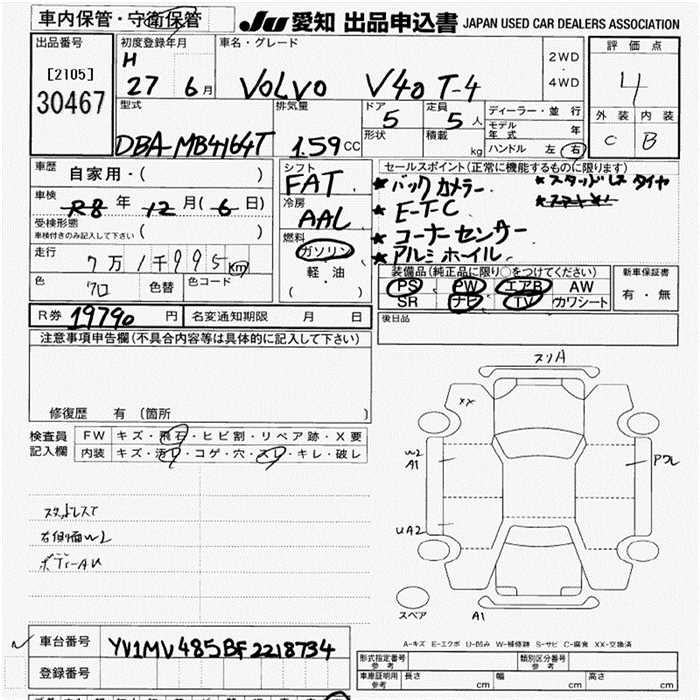 車内保管・守衛保管
JU 愛知 出品申込書 JAPAN USED CAR DEALERS ASSOCIATION
出品番号
[2105]
30467
初度登録年月
H
27 6月
車名・グレード
VOLVO V40 T-4
2WD
・
4WD
評価点
4
外装 内装
C B
型式
DBA-MB4164T
排気量
1.59cc
ドア
5
定員
5人
形状
積載
kg
ディーラー・並行
モデル年式 年
ハンドル 左 右
車歴
自家用・( )
車検
R8年 12月(6日)
受検形態
車検付きのみ記入して下さい ( )
走行
7万1千995km
色
クロ
色替
色コード
シフト
FAT
冷房
AAC
燃料
ガソリン
軽・油
( ・ )
セールスポイント(正常に機能するものに限ります)
★バックカメラー. ★スタッドレスタイヤ
★E-TC
★コーナーセンサー
★アルミホイール.
装備品(純正品に限り○をつけてください)
PS PW エアB AW
SR ナビ TV カワシート
新車保証書
有・無
後日品
R券 19790円
名変通知期限 月 日
注意事項申告欄(不具合内容等は具体的に記入して下さい)
修復歴 有(箇所 )
検査員
記入欄
FW キズ・飛石・ヒビ割・リペア跡・X要
内装 キズ・汚レ・コゲ・穴・スレ・キレ・破レ
スタッドレスて
右側面W2
ボディーAU
スリA
XX
W2
A1
UA2
A1
スペア
A-キズ E-エクボ U-凹み W-補修跡 S-サビ C-腐食 XX-交換済
車台番号
YV1MV485BF2218734
登録番号
形式指定番号
参考
類別区分番号
参考
車庫証明用
参考
長さ cm
幅 cm
高さ cm